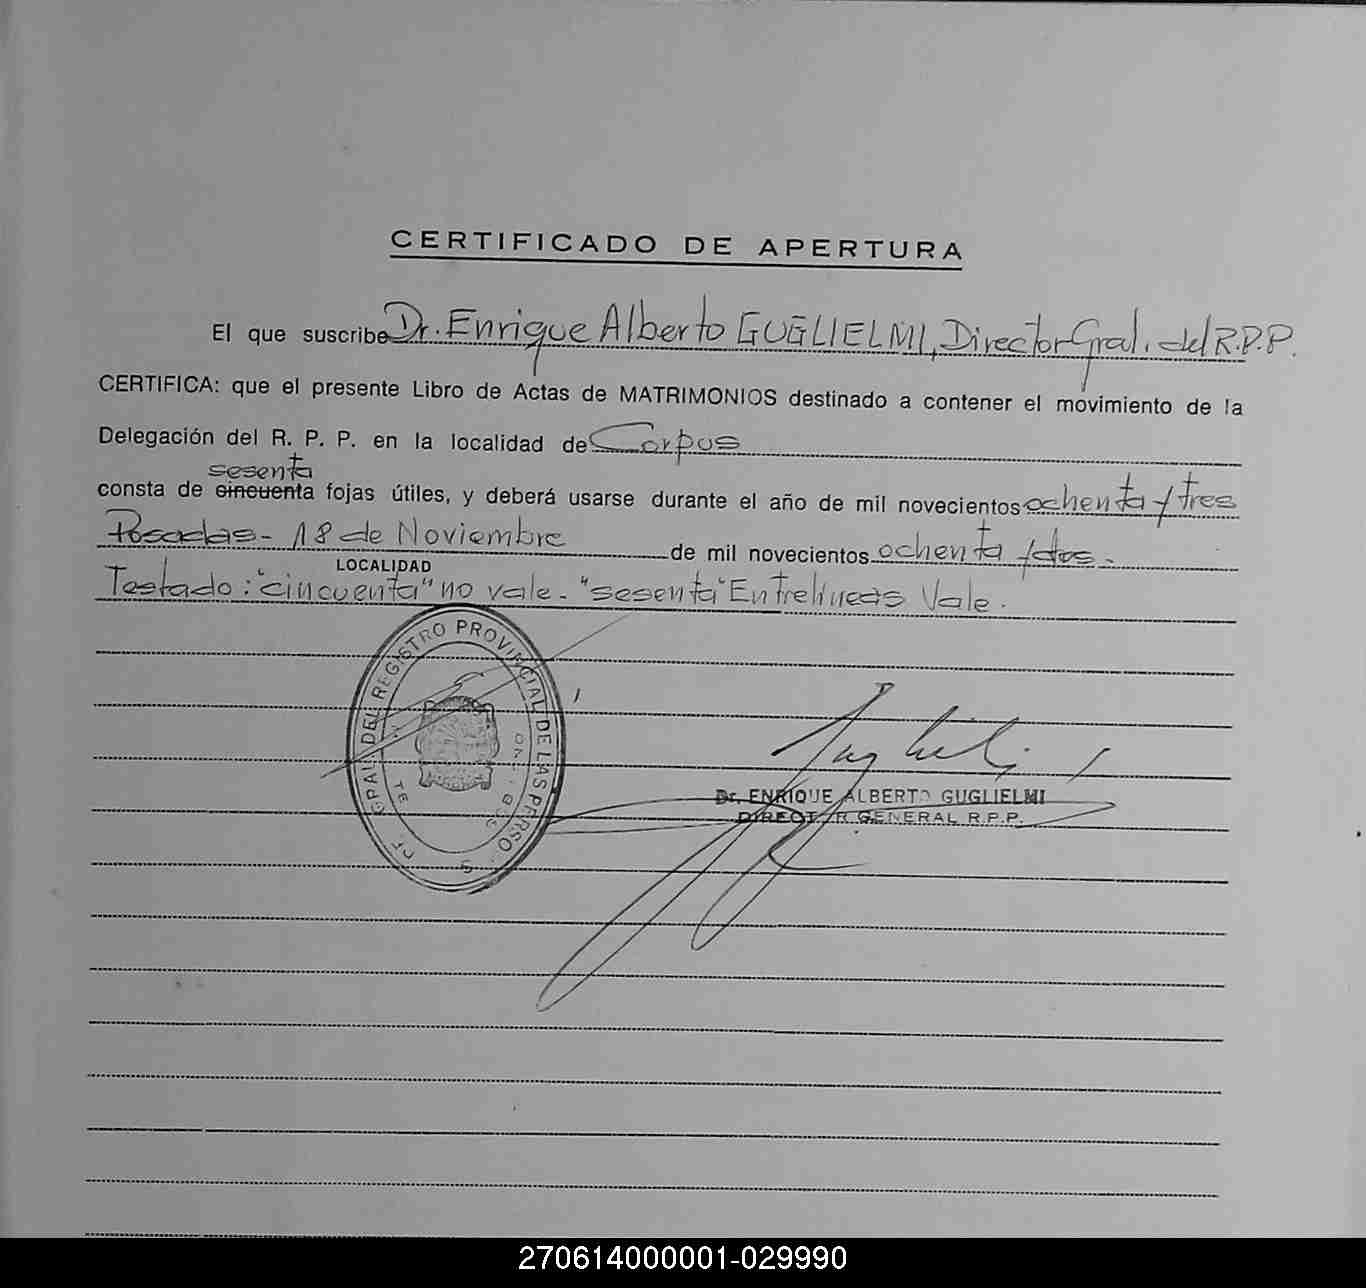 CERTIFICADO DE APERTURA
El que suscribe Dr. Enrique Alberto GUGLIELMI, Director Gral. del R.P.P.
CERTIFICA: que el presente Libro de Actas de MATRIMONIOS destinado a contener el movimiento de la
Delegación del R. P. P. en la localidad de Corpus
sesenta
consta de cincuenta fojas útiles, y deberá usarse durante el año de mil novecientos ochenta y tres
Posadas - 18 de Noviembre de mil novecientos ochenta y dos -
LOCALIDAD
Testado: "cincuenta" no vale - "sesenta" Entrelíneas Vale.
GRAL DEL REGISTRO PROVINCIAL DE LAS PERSO
Dr. ENRIQUE ALBERTO GUGLIELMI
DIRECTOR GENERAL R.P.P.
270614000001-029990